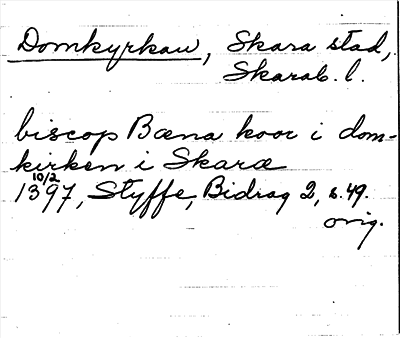 Domkyrkan, Skara stad,
Skarab. l.
biscop Bæna koor i dom-
kirken i Skaræ
10/2
1397, Styffe, Bidrag 2, s. 49.
orig.